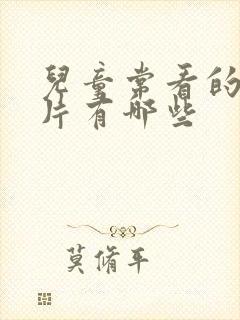 兒童常看的
片有哪些
莫脩平